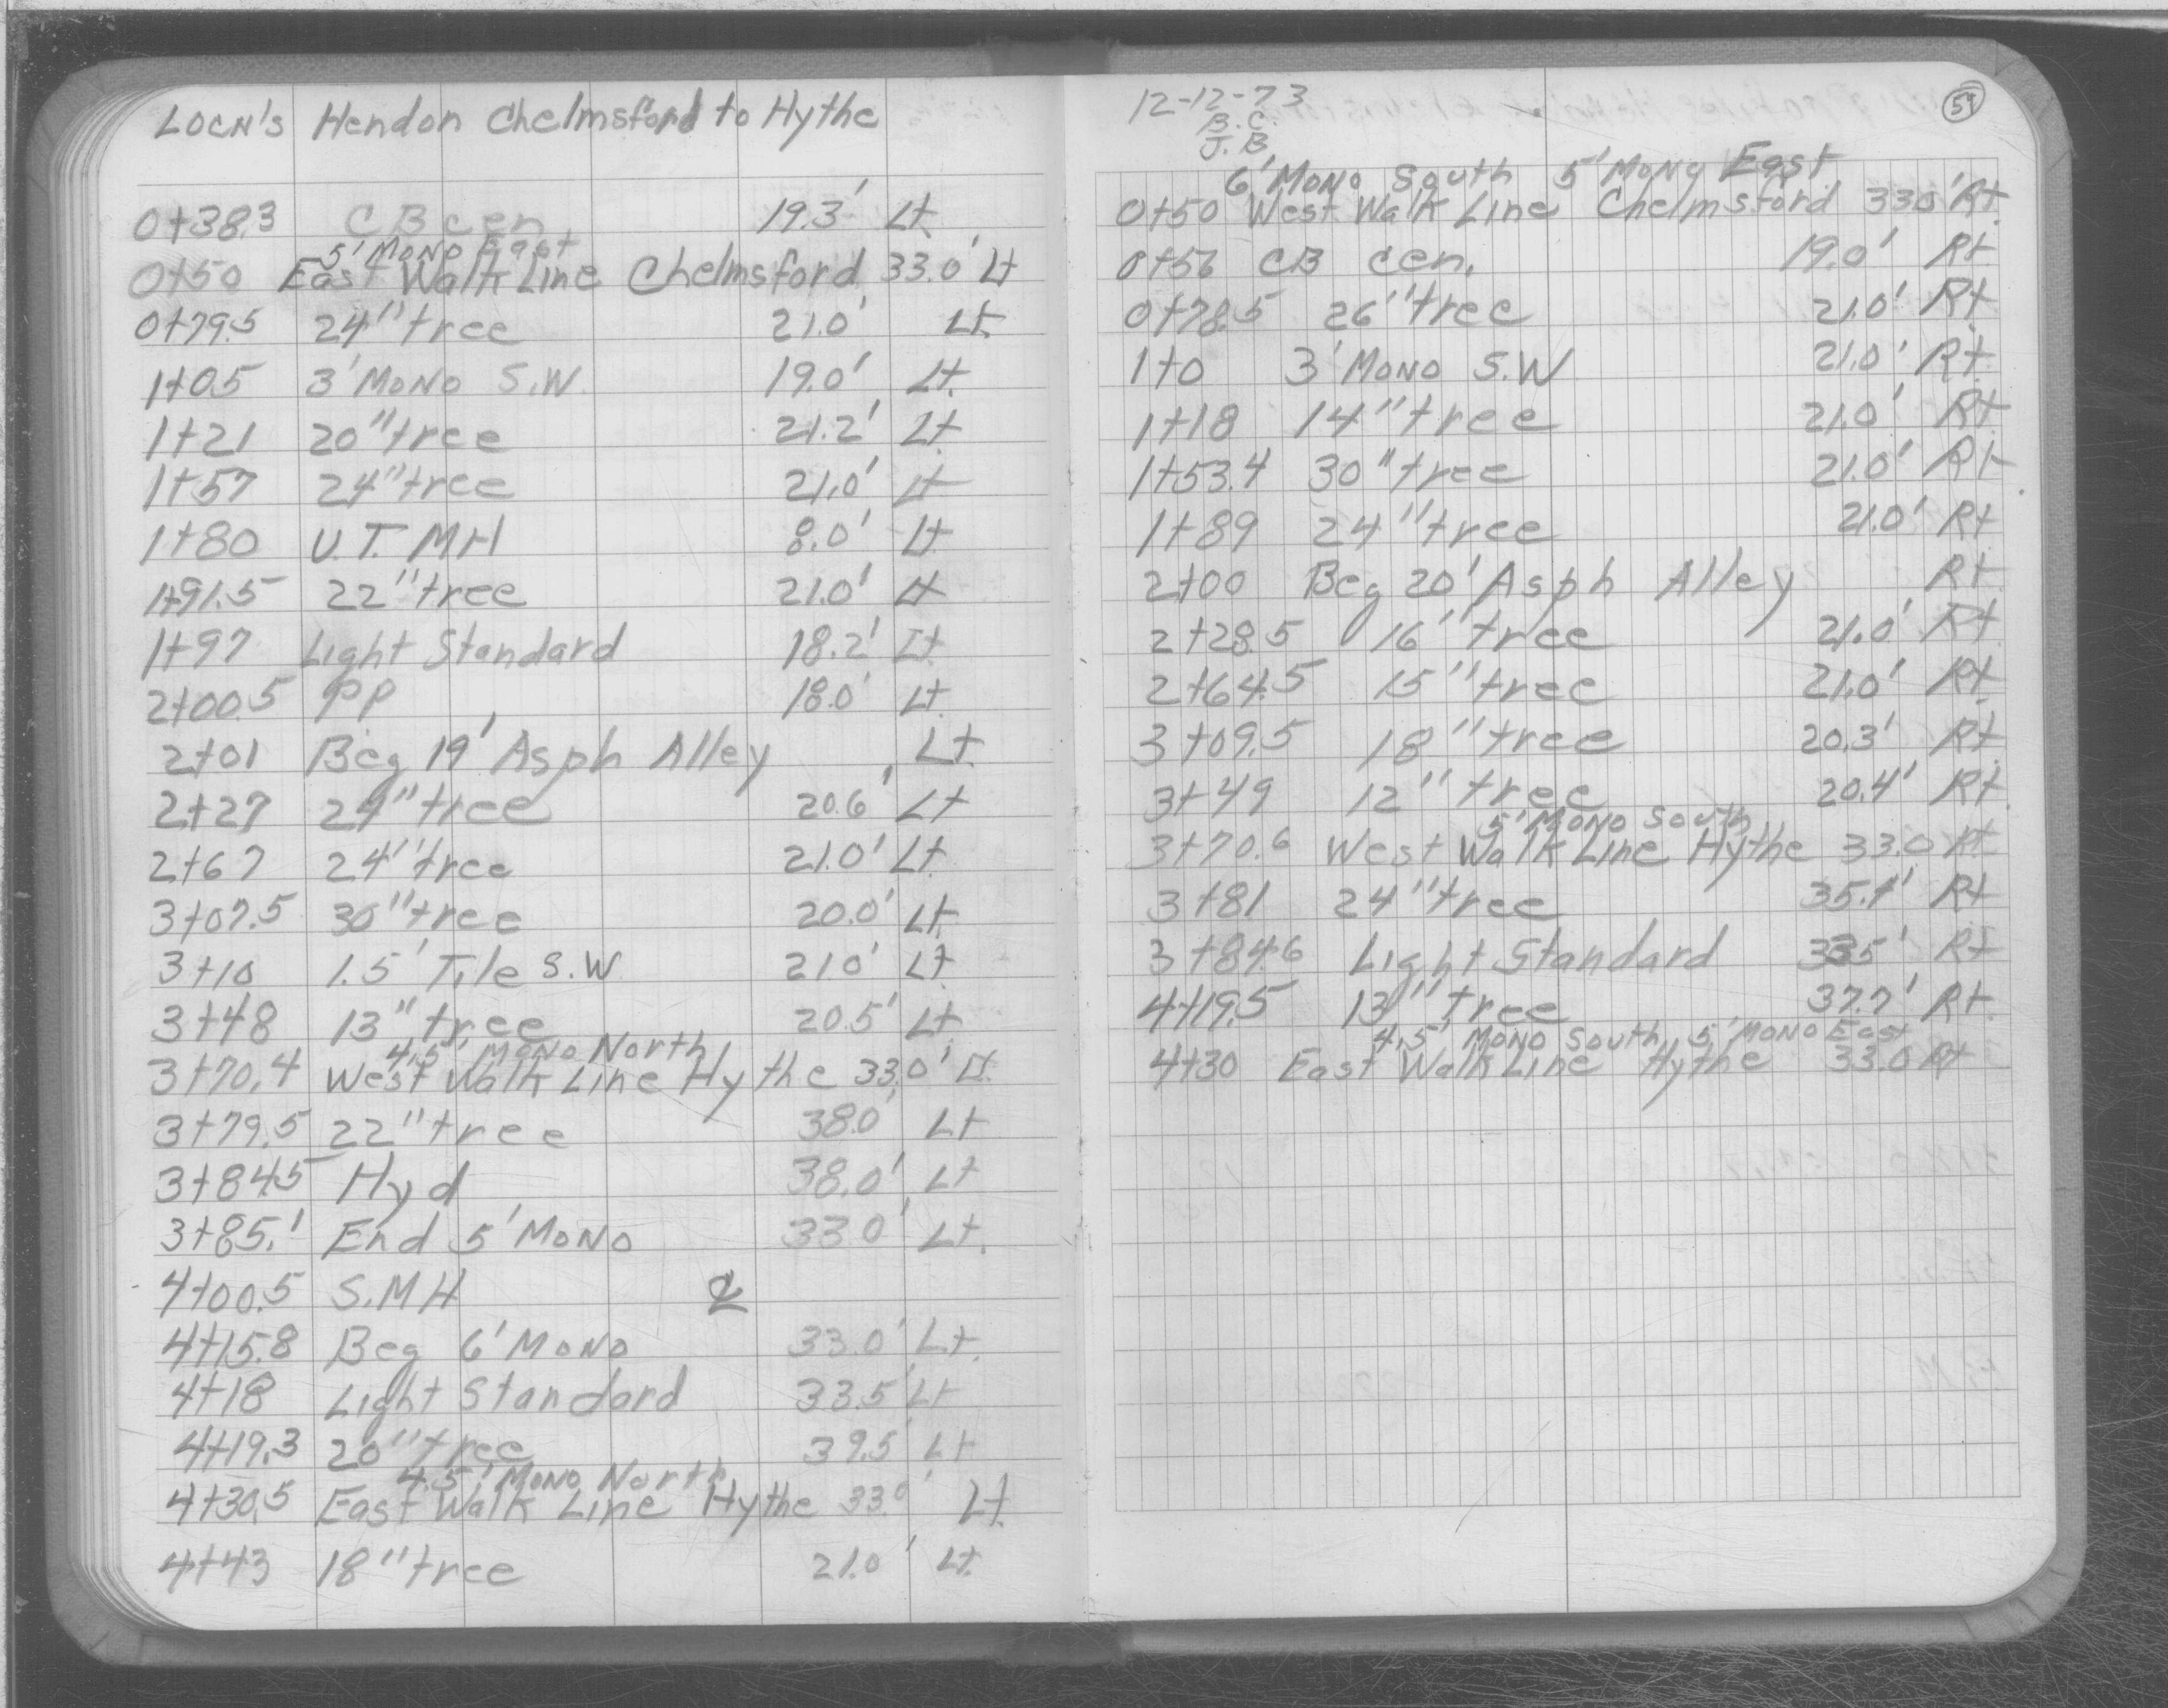 LOCN's Hendon Chelmsford to Hythe
0+38.3 CB cen 19.3' Lt
5' MONO East
0+50 East Walk Line Chelmsford 33.0' Lt
0+79.5 24" tree 21.0' Lt.
1+0.5 3' MONO S.W. 19.0' Lt.
1+21 20" tree 21.2' Lt
1+57 24" tree 21.0' Lt
1+80 U.T. MH 8.0' Lt
1+91.5 22" tree 21.0' Lt
1+97 Light Standard 18.2' Lt
2+00.5 PP 18.0' Lt.
2+01 Beg 19' Asph Alley Lt.
2+27 24" tree 20.6' Lt
2+67 24" tree 21.0' Lt
3+07.5 30" tree 20.0' Lt.
3+10 1.5' Tile S.W 21.0' Lt
3+48 13" tree 20.5' Lt
4.5' MONO North
3+70.4 West Walk Line Hythe 33.0' Lt
3+79.5 22" tree 38.0' Lt
3+84.5 Hyd 38.0' Lt
3+85.1 End 5' MONO 33.0' Lt.
4+00.5 S.MH ℄
4+15.8 Beg 6' MONO 33.0' Lt.
4+18 Light Standard 33.5' Lt
4+19.3 20" tree 39.5' Lt
4.5' MONO North
4+30.5 East Walk Line Hythe 33.0' Lt.
4+43 18" tree 21.0' Lt.
12-12-73
B.C.
J.B.
6' MONO South 5' MONO East
0+50 West Walk Line Chelmsford 33.0' Rt.
0+56 CB cen. 19.0' Rt
0+78.5 26" tree 21.0' Rt
1+0 3' MONO S.W 21.0' Rt.
1+18 14" tree 21.0' Rt
1+53.4 30" tree 21.0' Rt
1+89 24" tree 21.0' Rt
2+00 Beg 20' Asph Alley Rt
2+28.5 16" tree 21.0' Rt
2+64.5 15" tree 21.0' Rt
3+09.5 18" tree 20.3' Rt
3+49 12" tree 20.4' Rt
5' MONO South
3+70.6 West Walk Line Hythe 33.0 Rt
3+81 24" tree Rt
3+84.6 Light Standard 33.5' Rt
4+19.5 13" tree 37.7' Rt.
4.5' MONO South, 5' MONO East
4+30 East Walk Line Hythe 33.0 Rt